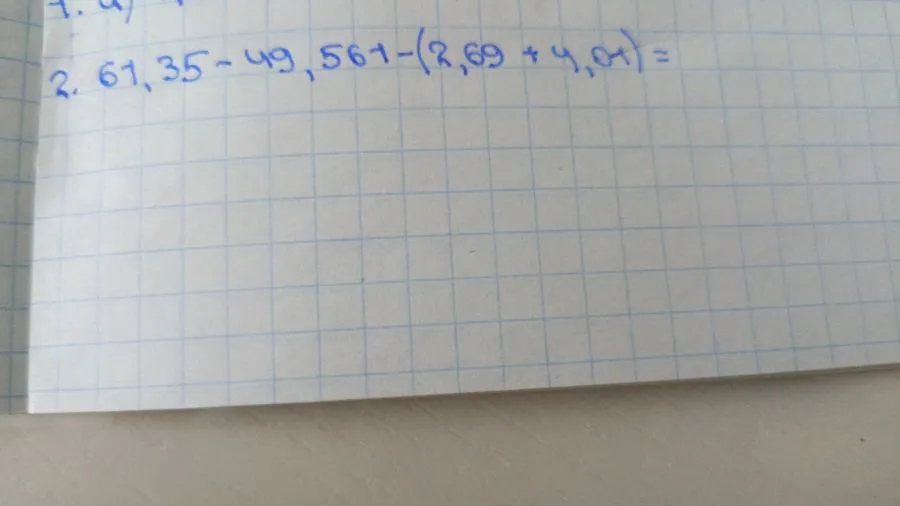 1. а)
2. 61,35 - 49,561 - (2,69 + 4,01) =